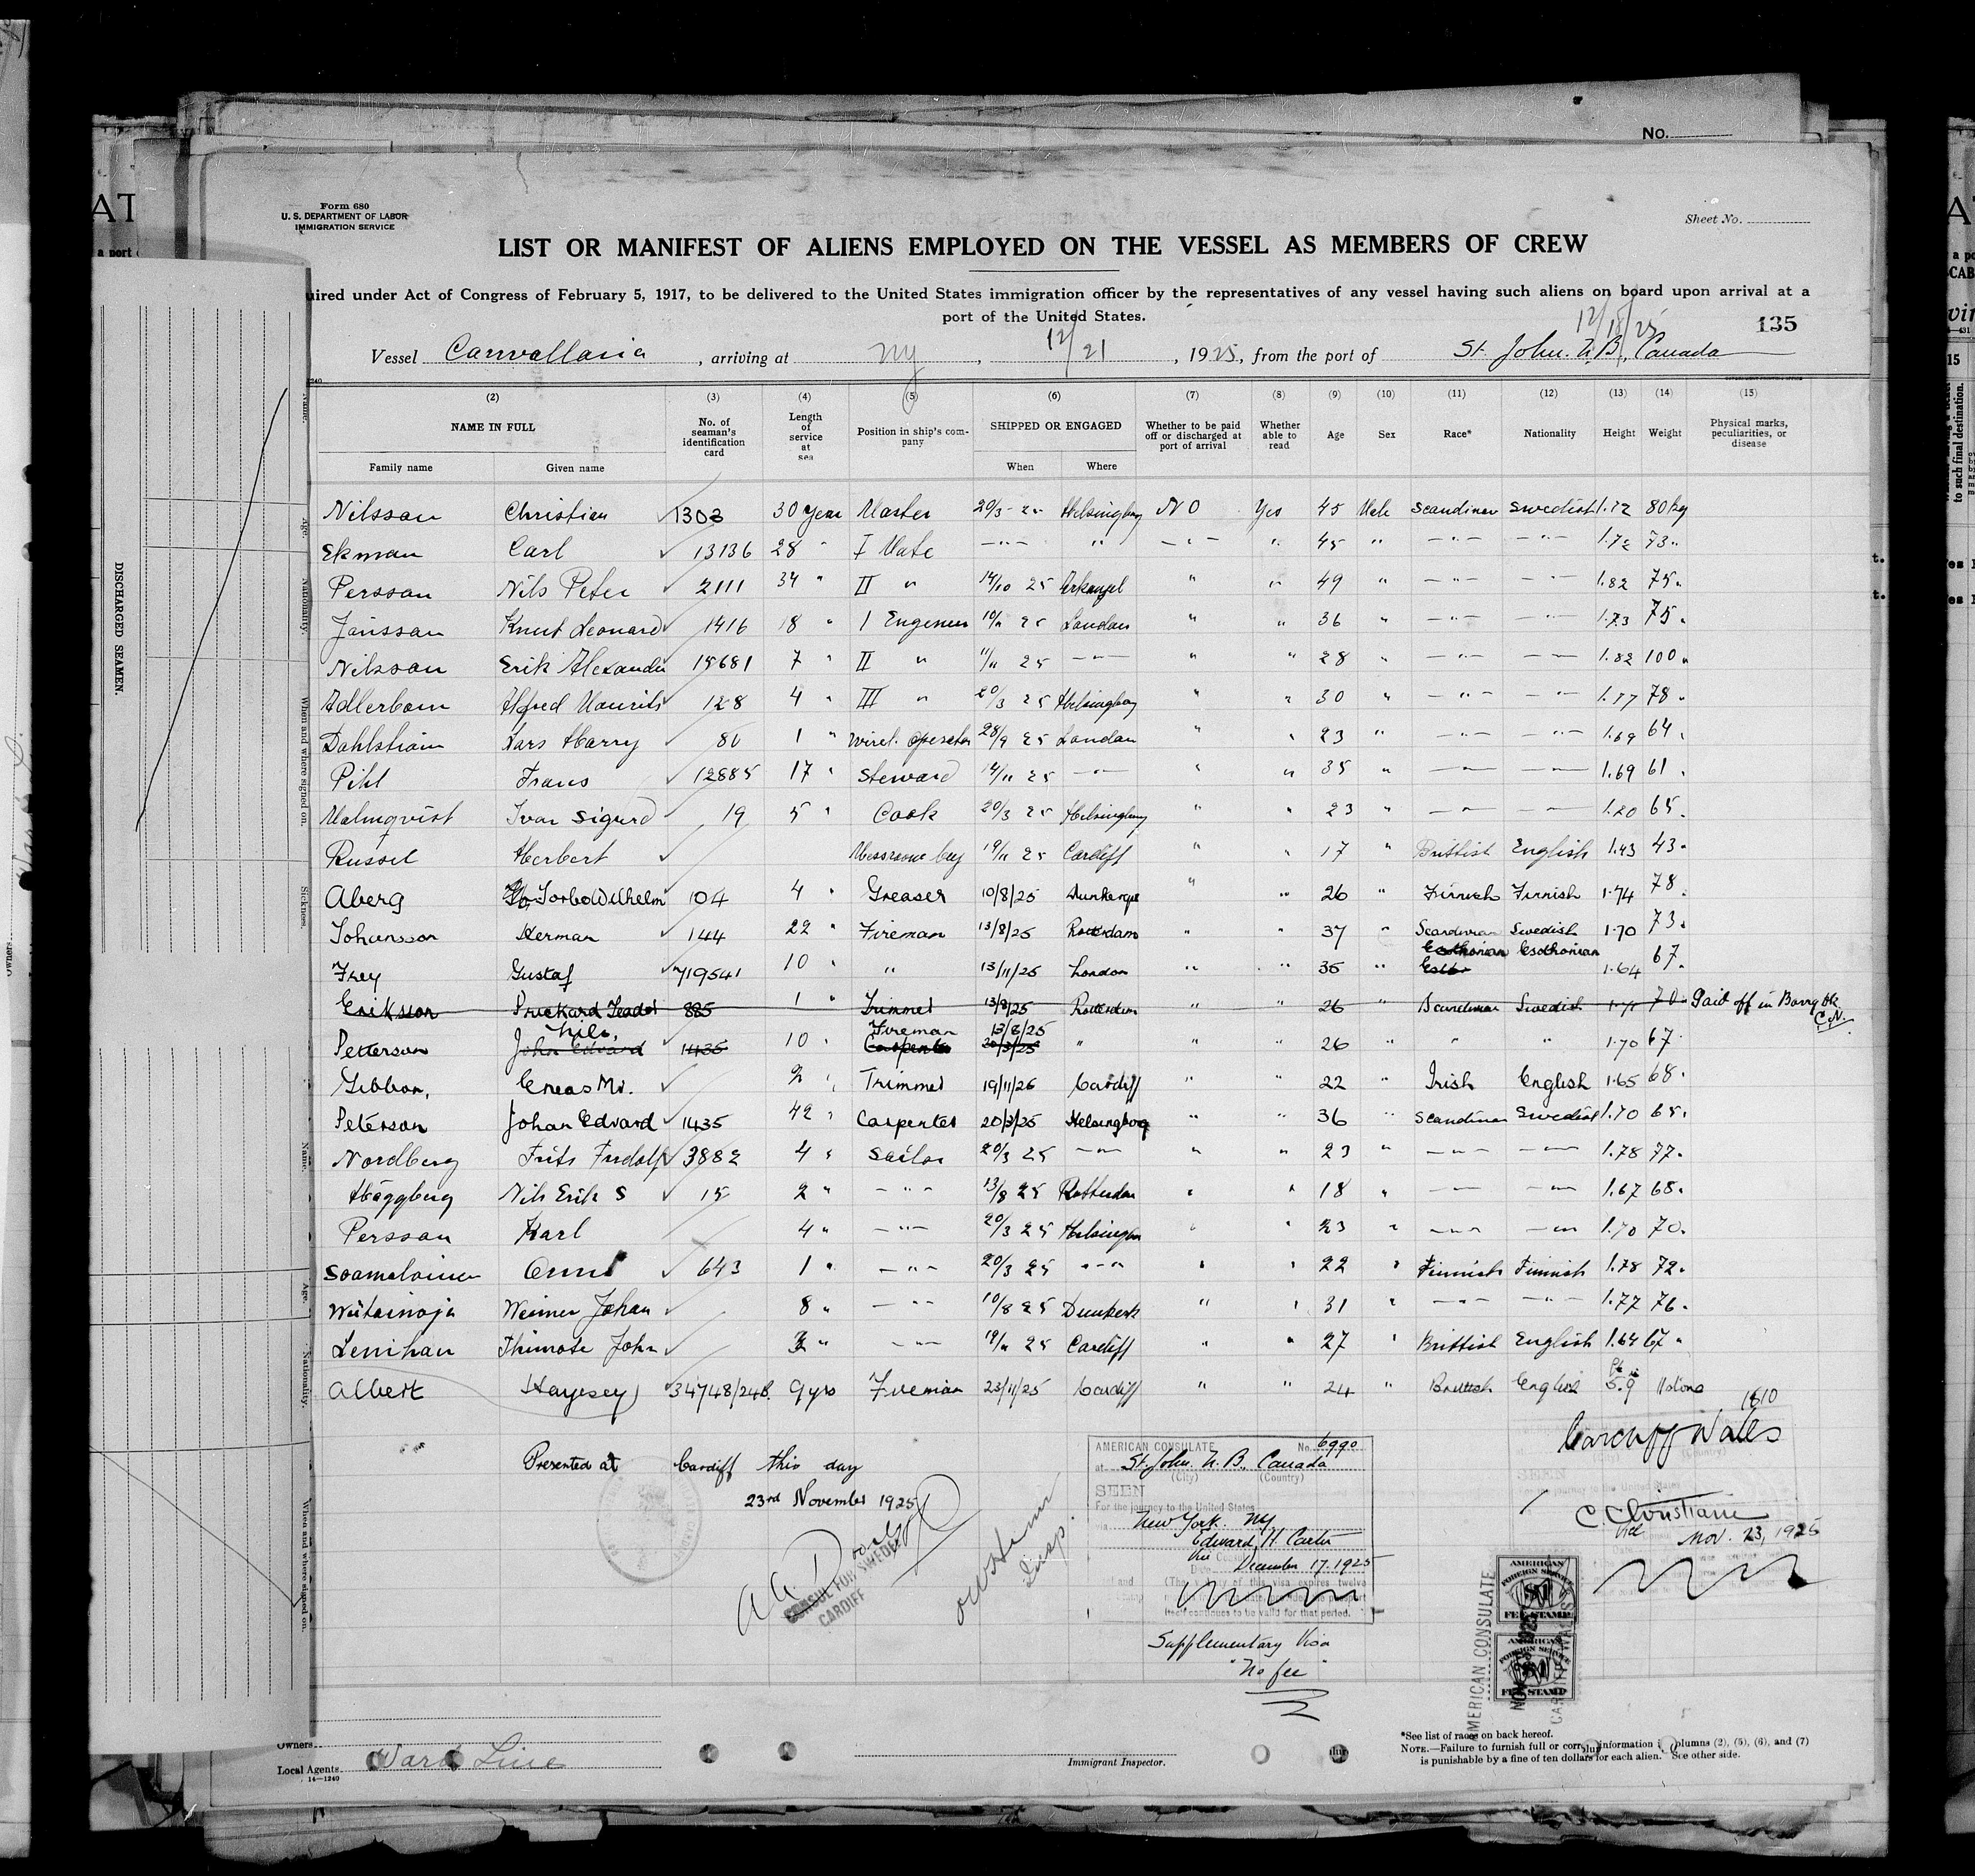 No.
Form 680
U. S. DEPARTMENT OF LABOR
IMMIGRATION SERVICE
Sheet No.
LIST OR MANIFEST OF ALIENS EMPLOYED ON THE VESSEL AS MEMBERS OF CREW
uired under Act of Congress of February 5, 1917, to be delivered to the United States immigration officer by the representatives of any vessel having such aliens on board upon arrival at a
port of the United States.
12/18/25
135
Vessel Canvallaria, arriving at NY, 12/21, 1925, from the port of St. John. N.B., Canada
(2) (3) (4) (5) (6) (7) (8) (9) (10) (11) (12) (13) (14) (15)
NAME IN FULL No. of seaman's identification card Length of service at sea Position in ship's company SHIPPED OR ENGAGED Whether to be paid off or discharged at port of arrival Whether able to read Age Sex Race* Nationality Height Weight Physical marks, peculiarities, or disease
Family name Given name When Where
Nilsson Christian 1303 30 year Master 20/3 - 25 Helsingborg NO Yes 45 Male Scandinav Swedish 1.72 80 kg
Ekman Carl 13136 28 " I Mate -"- " -"- " 45 " -"- -"- 1.72 73 "
Persson Nils Peter 2111 34 " II " 14/10 25 Arkangel " " 49 " -"- -"- 1.82 75 "
Jönsson Knut Leonard 1416 18 " I Engeneer 10/11 25 London " " 36 " -"- -"- 1.73 75 "
Nilsson Erik Alexander 15681 7 " II " 11/11 25 -"- " " 28 " -"- -"- 1.82 100 "
Adlerborn Alfred Maurits 128 4 " III " 20/3 25 Helsingborg " " 30 " -"- -"- 1.77 78 "
Dahlström Lars Harry 80 1 " Wirel. Operator 28/9 25 London " " 23 " -"- -"- 1.69 64 "
Pihl Frans 12885 17 " Steward 14/11 25 -"- " " 35 " -"- -"- 1.69 61 "
Malmqvist Ivar Sigurd 19 5 " Cook 20/3 25 Helsingborg " " 23 " -"- -"- 1.20 65 "
Russel Herbert Messroom boy 19/11 25 Cardiff " " 17 " Brittish English 1.43 43 "
Aberg Torbo Wilhelm 104 4 " Greaser 10/8/25 Dunkerque " " 26 Finnish Finnish 1.74 78 "
Johansson Herman 144 22 " Fireman 13/8/25 Rotterdam " " 37 " Scandinav Swedish 1.70 73 "
Frey Gustaf 719541 10 " " 13/11/25 London " " 35 " Esthonian Esthonian 1.64 67 "
Eriksson 885 1 " Trimmer 13/8/25 Rotterdam " " 26 " Scandinav Swedish 70 Paid off in Barry Dk C.N.
Petterson John Edvard Nils 1435 10 " Carpenter Fireman 20/3/25 13/8/25 " " " 26 " " " 1.70 67 "
Gibbon, Eneas Mr. 2 " Trimmer 19/11/25 Cardiff " " 22 " Irish English 1.65 68 "
Peterson Johan Edvard 1435 42 " Carpenter 20/3/25 Helsingborg " " 36 " Scandinav Swedish 1.70 65 "
Nordberg Frits Fridolf 3882 4 " Sailor 20/3 25 -"- " " 23 " -"- -"- 1.78 77 "
Häggberg Nils Erik S 15 2 " -"- 13/8 25 Rotterdam " " 18 " -"- -"- 1.67 68 "
Persson Karl 4 " -"- 20/3 25 Helsingborg " " 23 " -"- -"- 1.70 70 "
Soamelainen Onni 643 1 " -"- 20/3 25 -"- " " 22 " Finnish Finnish 1.78 72 "
Wiitainoja Weiner Johan 8 " -"- 10/8 25 Dunkerk " " 31 " -"- -"- 1.77 76 "
Lenihan Thimote John 3 " -"- 19/11 25 Cardiff " " 27 " Brittish English 1.64 67 "
Albert Hayesey 34748/248 9 yrs Fireman 23/11/25 Cardiff " " 24 " British English 5.9
1610
Cardiff Wales
Presented at Cardiff this day
23rd November 1925
CONSUL FOR SWEDEN
CARDIFF
Insp.
AMERICAN CONSULATE No. 6990
at St. John. N. B., Canada
(City) (Country)
SEEN
For the journey to the United States
via New York. NY
Edward H. Carter
Vice
Date December 17. 1925
Supplementary Visa
"No fee"
Vice
Nov. 23, 1925
AMERICAN CONSULATE
AMERICAN
FOREIGN SERVICE
FEE STAMP
AMERICAN
FOREIGN SERVICE
FEE STAMP
Owners
Local Agents Ward Line
14—1240
Immigrant Inspector.
*See list of races on back hereof.
NOTE.—Failure to furnish full or correct information in columns (2), (5), (6), and (7)
is punishable by a fine of ten dollars for each alien. See other side.
DISCHARGED SEAMEN.
Name.
Age.
Nationality.
When and where signed on.
Sickness.
Name.
Age.
Nationality.
When and where signed on.